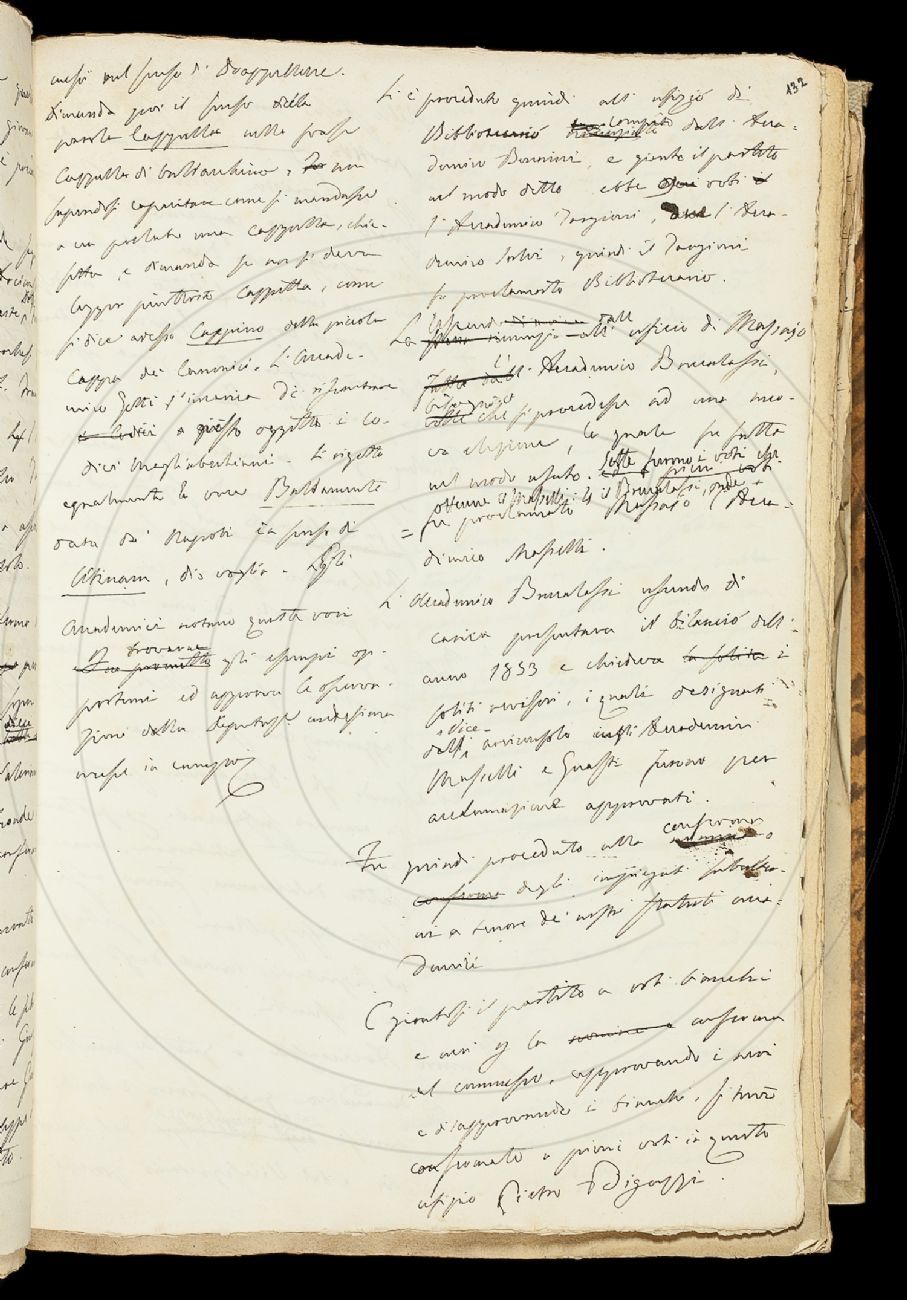 132
anche nel senso di Scappellare.
Dimanda poi il senso della
parola Cappella nella frase
Cappella di baldacchino,
a un prelato una Cappella, chie-
e dimanda se non si deva
legger piuttosto Cappetta, come
si dice adesso Cappino della piccola
Cappa dei Canonici. L'Accade-
mico Zotti s'incarica di riscontrare
a questo oggetto i Co-
dici Magliabechiani. Si rigetta
egualmente la voce
data da' Napoli in senso di
Utinam, Dio voglia. Gli
Accademici notino questa voce
trovarne gli esempi op-
portuni ed approva le osserva-
zioni della Deputazione
Si è proceduto quindi all' ufizio di
Bibliotecario dall' Acca-
demico Bencini, e girato il partito
nel modo detto ebbe voti
l'Accademico Targioni, l'Acca-
demico Salvi, quindi il Targioni
fu proclamato Bibliotecario.
all' uficio di Massajo
Accademico Brucalassi,
che si procedesse ad una nuo-
va elezione, la quale fu fatta
nel modo usato. Sette furono i voti che
ottenne il Maselli: il Brucalassi, onde
fu proclamato Massajo l'Acca-
demico Maselli.
L' Accademico Brucalassi usendo di
carica presentava il bilancio dell'
anno 1833 e chiedeva la solita i
soliti revisori, i quali designati
Vice-
dall' arciconsolo negli Accademici
Maselli e furono per
acclamazione approvati.
conferma
Fu quindi proceduto alla
conferma degli impiegati subalter-
ni a tenore de' nostri statuti acca-
demici
E giratosi il partito a voti bianchi
e neri per la conferma
del commesso, approvando i neri
e disapprovando i bianchi, si trovò
confermato a pieni voti in questo
ufizio Pietro Bigazzi.